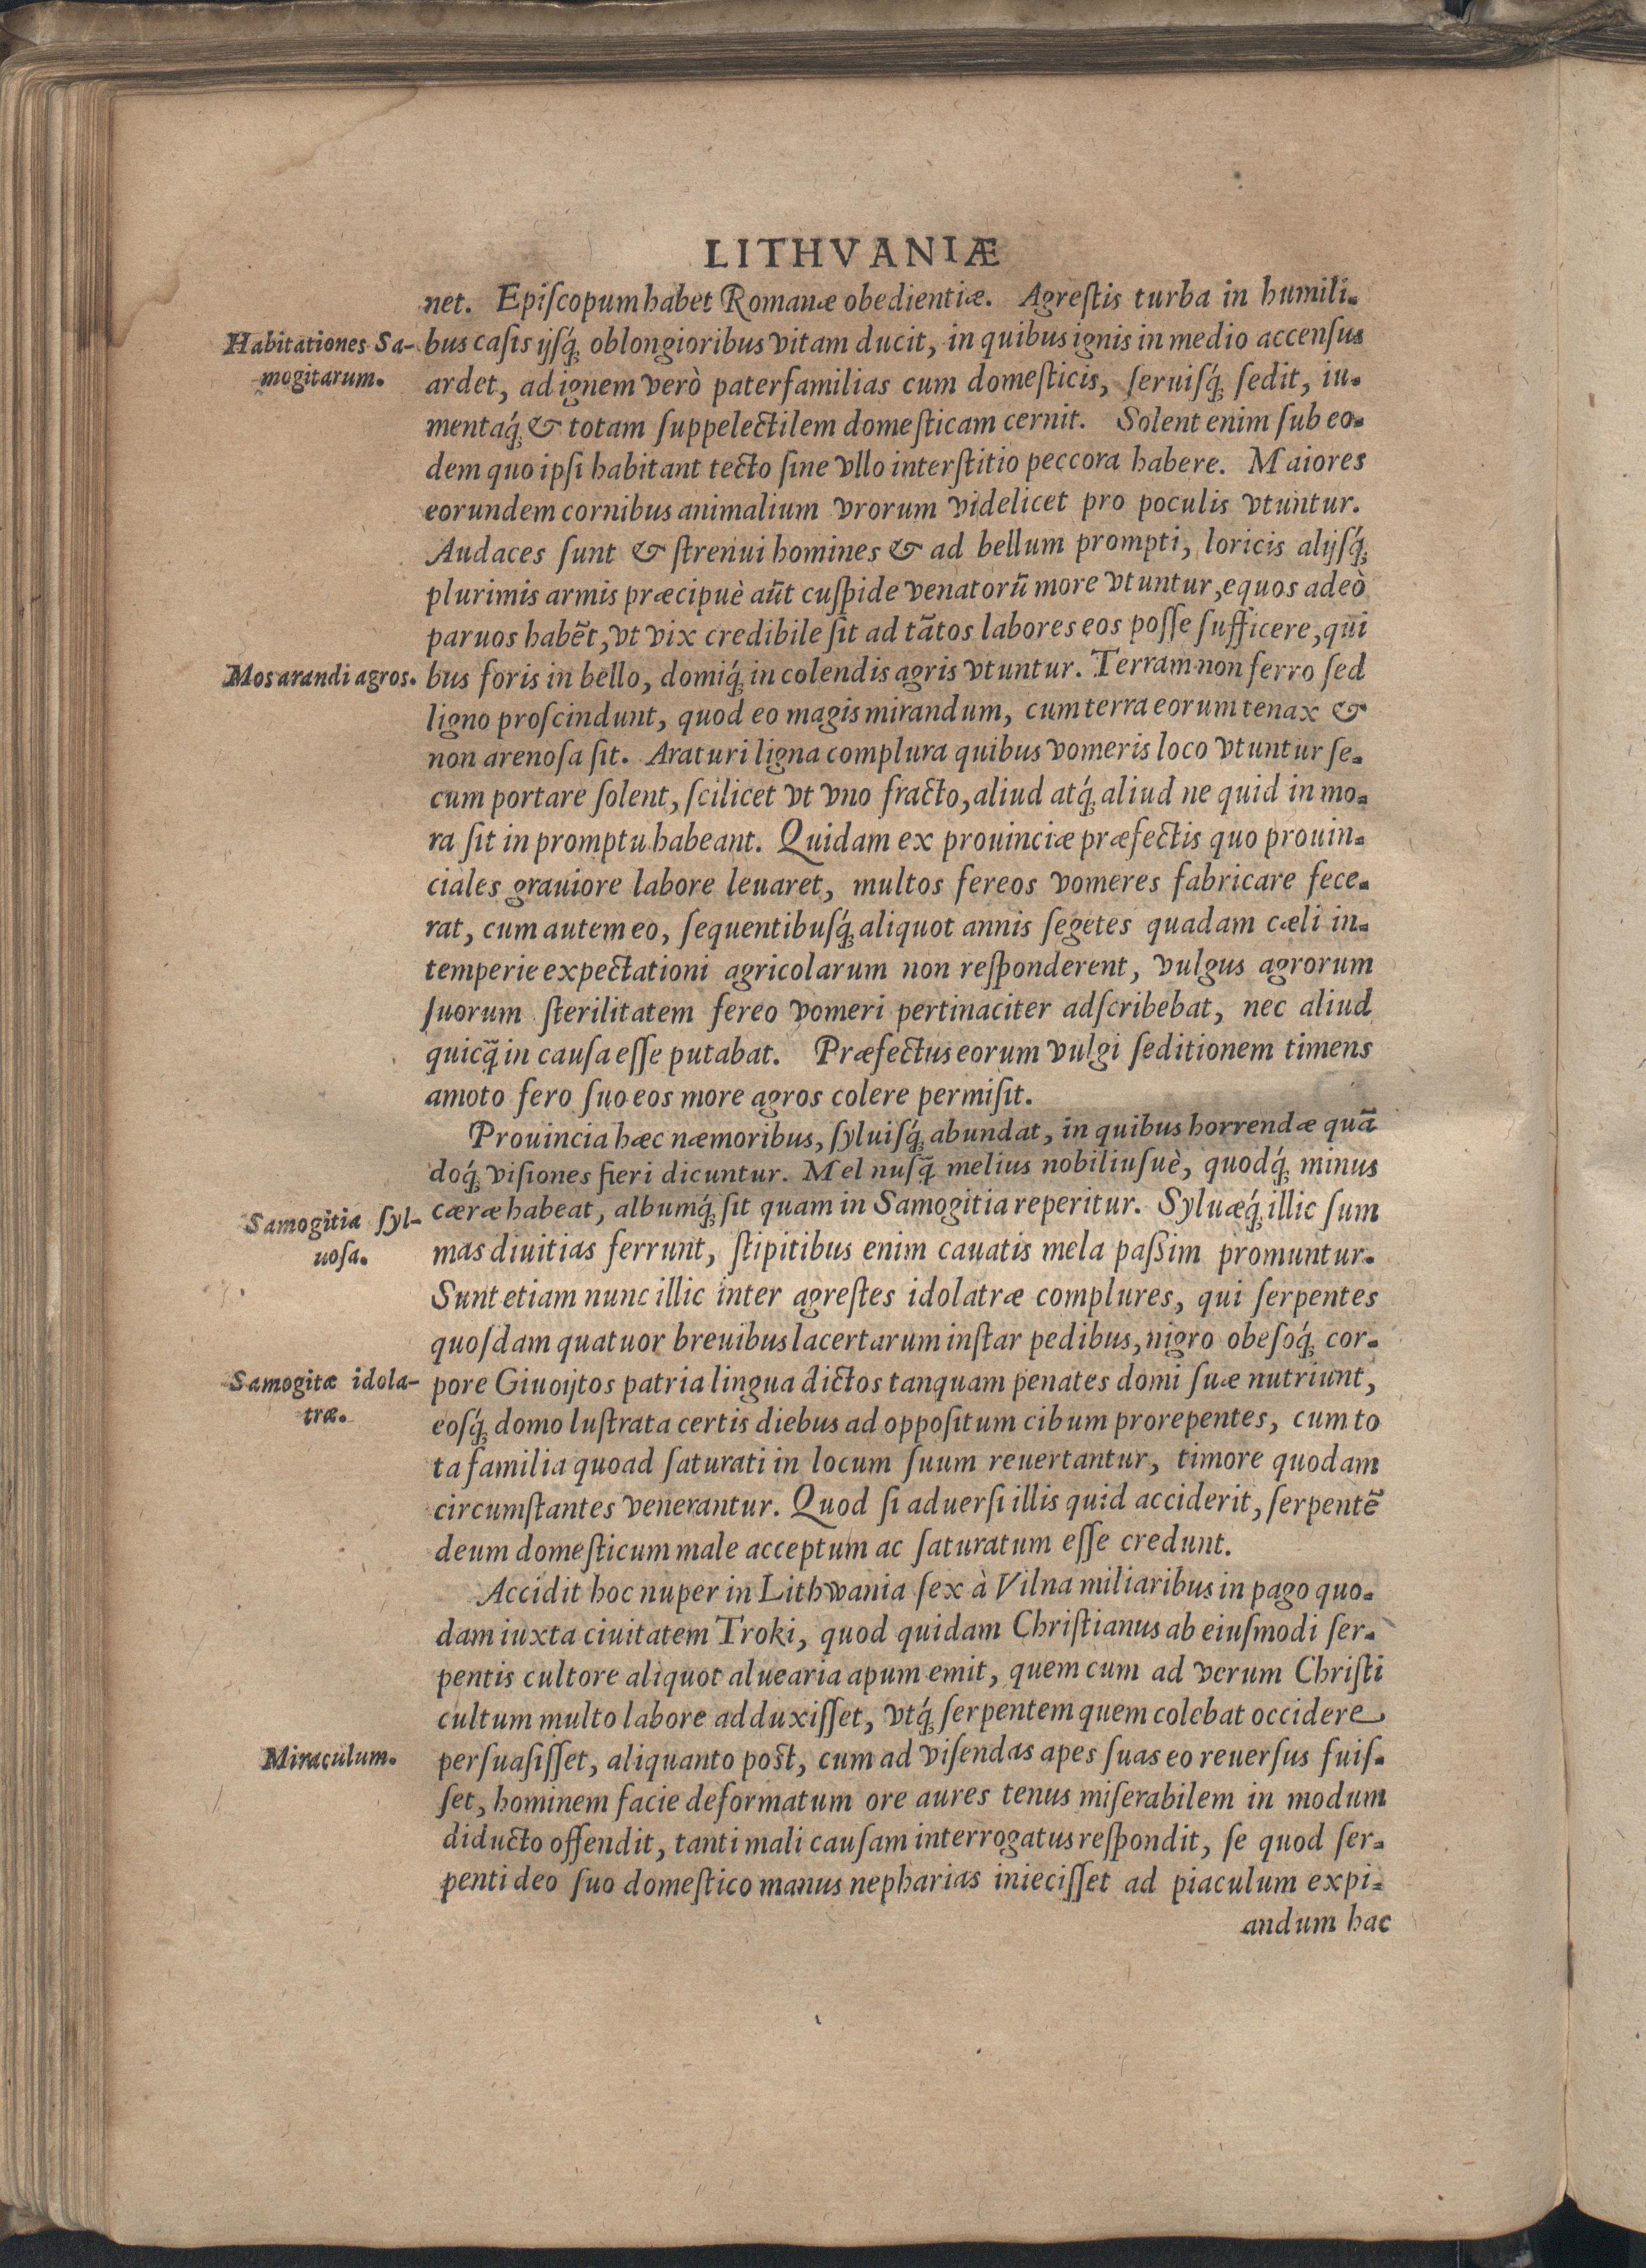 LITHVANIÆ
net. Epiſcopum habet Romanæ obedientiæ. Agreſtis turba in humili-
Habitationes Sa-
mogitarum.
bus caſis ijſq́ꝫ oblongioribus vitam ducit, in quibus ignis in medio accenſus
ardet, ad ignem verò paterfamilias cum domeſticis, ſeruiſq́ꝫ ſedit, iu-
mentaq́ꝫ & totam ſuppelectilem domeſticam cernit. Solent enim ſub eo-
dem quo ipſi habitant tecto ſine vllo interſtitio peccora habere. Maiores
eorundem cornibus animalium vrorum videlicet pro poculis vtuntur.
Audaces ſunt & ſtrenui homines & ad bellum prompti, loricis alijſq́ꝫ
plurimis armis præcipuè aũt cuſpide venatorũ more vtuntur, equos adeò
paruos habẽt, vt vix credibile ſit ad tãtos labores eos poſſe ſufficere, qui
Mos arandi agros.
bus foris in bello, domiq́ꝫ in colendis agris vtuntur. Terram non ferro ſed
ligno proſcindunt, quod eo magis mirandum, cum terra eorum tenax &
non arenoſa ſit. Araturi ligna complura quibus vomeris loco vtuntur ſe-
cum portare ſolent, ſcilicet vt vno fracto, aliud atq́ꝫ aliud ne quid in mo-
ra ſit in promptu habeant. Quidam ex prouinciæ præfectis quo prouin-
ciales grauiore labore leuaret, multos fereos vomeres fabricare fece-
rat, cum autem eo, ſequentibuſq́ꝫ aliquot annis ſegetes quadam cæli in-
temperie expectationi agricolarum non reſponderent, vulgus agrorum
ſuorum ſterilitatem fereo vomeri pertinaciter adſcribebat, nec aliud
quicq̃ in cauſa eſſe putabat. Præfectus eorum vulgi ſeditionem timens
amoto fero ſuo eos more agros colere permiſit.
Prouincia hæc næmoribus, ſyluiſq́ꝫ abundat, in quibus horrendæ quã
doq́ꝫ viſiones fieri dicuntur. Mel nuſq̃ melius nobiliuſuè, quodq́ꝫ minus
Samogitia ſyl-
uoſa.
cæræ habeat, albumq́ꝫ ſit quam in Samogitia reperitur. Syluæq́ꝫ illic ſum
mas diuitias ferrunt, ſtipitibus enim cauatis mela paßim promuntur.
Sunt etiam nunc illic inter agreſtes idolatræ complures, qui ſerpentes
quoſdam quatuor breuibus lacertarum inſtar pedibus, nigro obeſoq́ꝫ cor-
Samogitæ idola-
træ.
pore Giuoijtos patria lingua dictos tanquam penates domi ſuæ nutriunt,
eoſq́ꝫ domo luſtrata certis diebus ad oppoſitum cibum prorepentes, cum to
ta familia quoad ſaturati in locum ſuum reuertantur, timore quodam
circumſtantes venerantur. Quod ſi aduerſi illis quid acciderit, ſerpentẽ
deum domeſticum male acceptum ac ſaturatum eſſe credunt.
Accidit hoc nuper in Lithwania ſex à Vilna miliaribus in pago quo-
dam iuxta ciuitatem Troki, quod quidam Chriſtianus ab eiuſmodi ſer-
pentis cultore aliquot aluearia apum emit, quem cum ad verum Chriſti
cultum multo labore adduxiſſet, vtq́ꝫ ſerpentem quem colebat occidere
Miraculum.
perſuaſiſſet, aliquanto poſt, cum ad viſendas apes ſuas eo reuerſus fuiſ-
ſet, hominem facie deformatum ore aures tenus miſerabilem in modum
diducto offendit, tanti mali cauſam interrogatus reſpondit, ſe quod ſer-
penti deo ſuo domeſtico manus nepharias inieciſſet ad piaculum expi-
andum hac